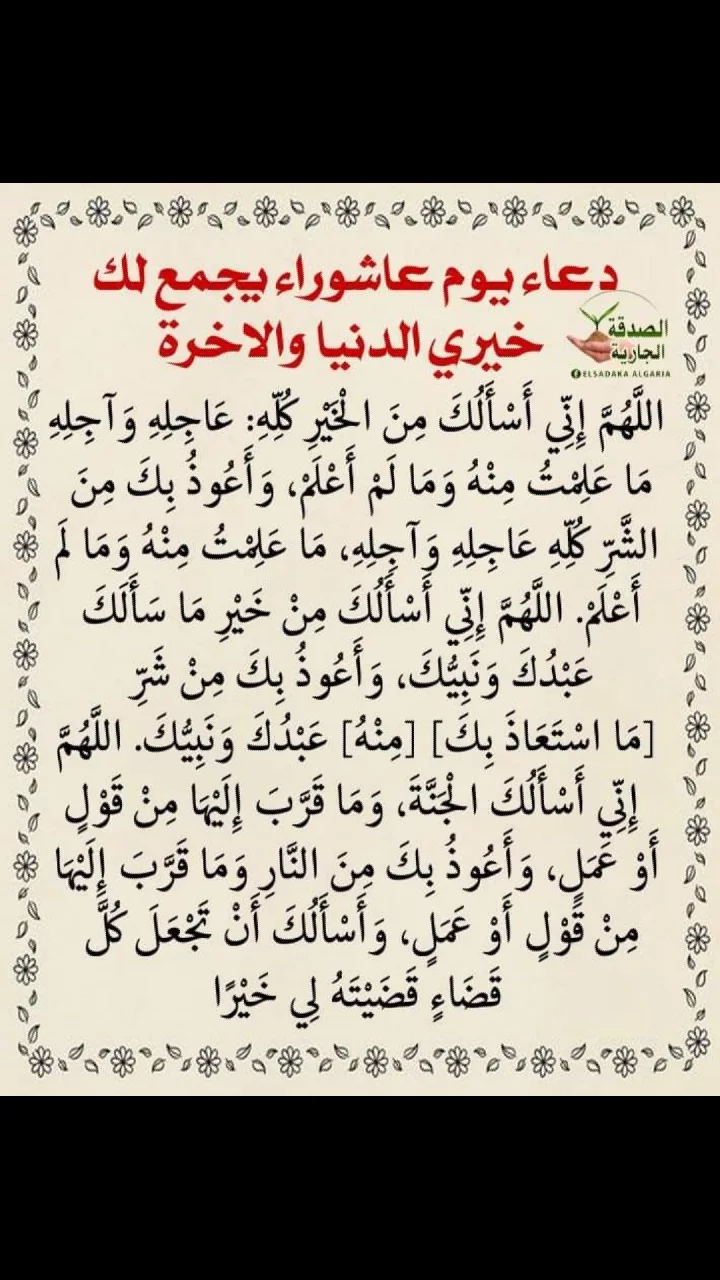 دعاء يوم عاشوراء يجمع لك
خيري الدنيا والاخرة
الصدقة
الجارية
ELSADAKA ALGARIA
اللَّهُمَّ إِنِّي أَسْأَلُكَ مِنَ الْخَيْرِ كُلِّهِ: عَاجِلِهِ وَآجِلِهِ
مَا عَلِمْتُ مِنْهُ وَمَا لَمْ أَعْلَمْ، وَأَعُوذُ بِكَ مِنَ
الشَّرِّ كُلِّهِ عَاجِلِهِ وَآجِلِهِ، مَا عَلِمْتُ مِنْهُ وَمَا لَم
أَعْلَمْ. اللَّهُمَّ إِنِّي أَسْأَلُكَ مِنْ خَيْرِ مَا سَأَلَكَ
عَبْدُكَ وَنَبِيُّكَ، وَأَعُوذُ بِكَ مِنْ شَرِّ
[مَا اسْتَعَاذَ بِكَ] [مِنْهُ] عَبْدُكَ وَنَبِيُّكَ. اللَّهُمَّ
إِنِّي أَسْأَلُكَ الْجَنَّةَ، وَمَا قَرَّبَ إِلَيْهَا مِنْ قَوْلٍ
أَوْ عَمَلٍ، وَأَعُوذُ بِكَ مِنَ النَّارِ وَمَا قَرَّبَ إِلَيْهَا
مِنْ قَوْلٍ أَوْ عَمَلٍ، وَأَسْأَلُكَ أَنْ تَجْعَلَ كُلَّ
قَضَاءٍ قَضَيْتَهُ لِي خَيْرًا